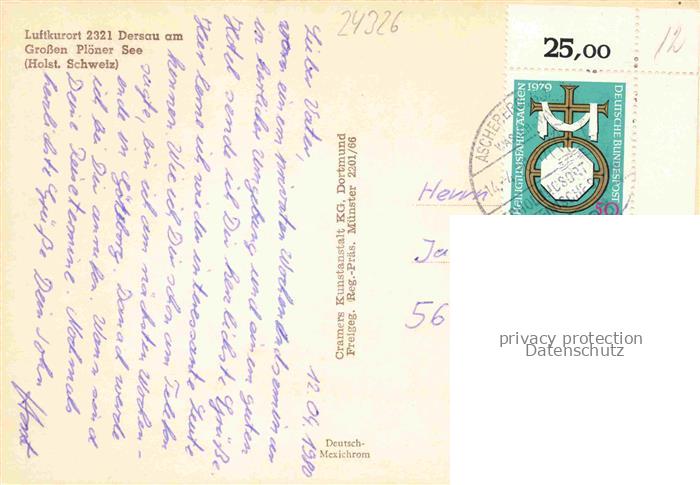 Luftkurort 2321 Dersau am
Großen Plöner See
(Holst. Schweiz)
24326
12.04.1980
Lieber Vater,
von einem Wochenendseminar in
in herrlicher Umgebung und einem guten
Hotel sende ich Dir herzlichste Grüße.
Hier lerne ich wieder interessante Leute
kennen. Wie ich Dir schon am Telefon
sagte, bin ich am nächsten Wochen-
ende in Göteborg. Danach werde
ich bei Dir anrufen. Wann sind
Deine Reisetermine. Nochmals
herzlichste Grüße Dein Sohn
Horst
Cramers Kunstanstalt KG, Dortmund
Freigeg. Reg.-Präs. Münster 2201/66
Deutsch-
Mexichrom
25,00
12
1979
HEILIGTUMSFAHRT AACHEN
DEUTSCHE BUNDESPOST
50
ASCHEBERG
Herrn
Ja
56
privacy protection
Datenschutz